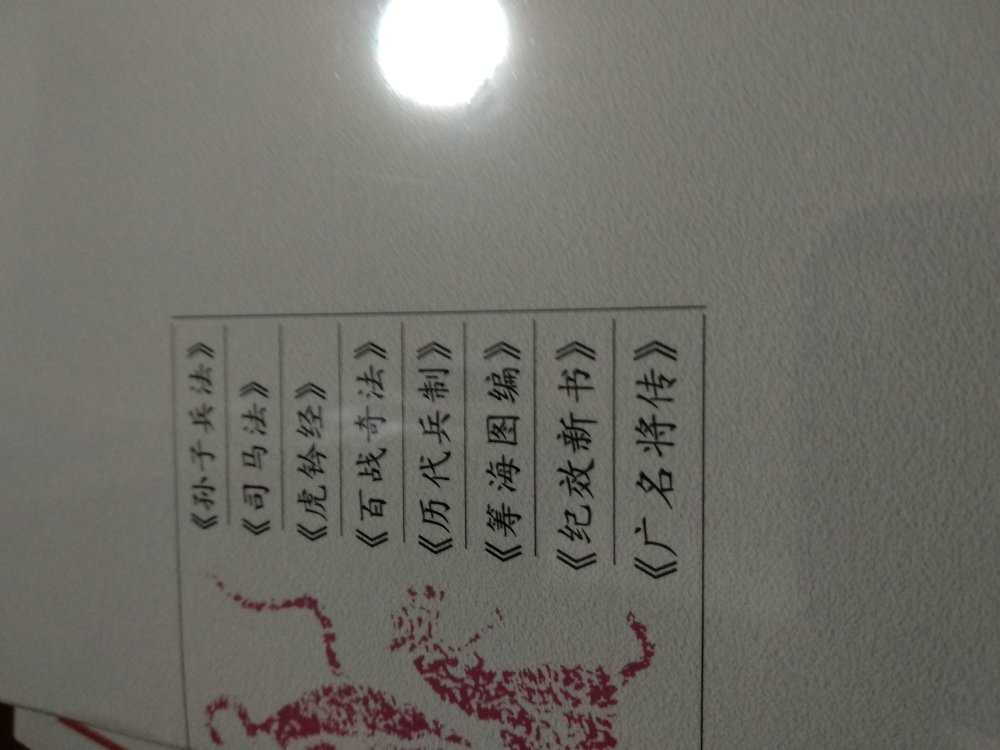 《孙子兵法》
《司马法》
《虎钤经》
《百战奇法》
《历代兵制》
《筹海图编》
《纪效新书》
《广名将传》